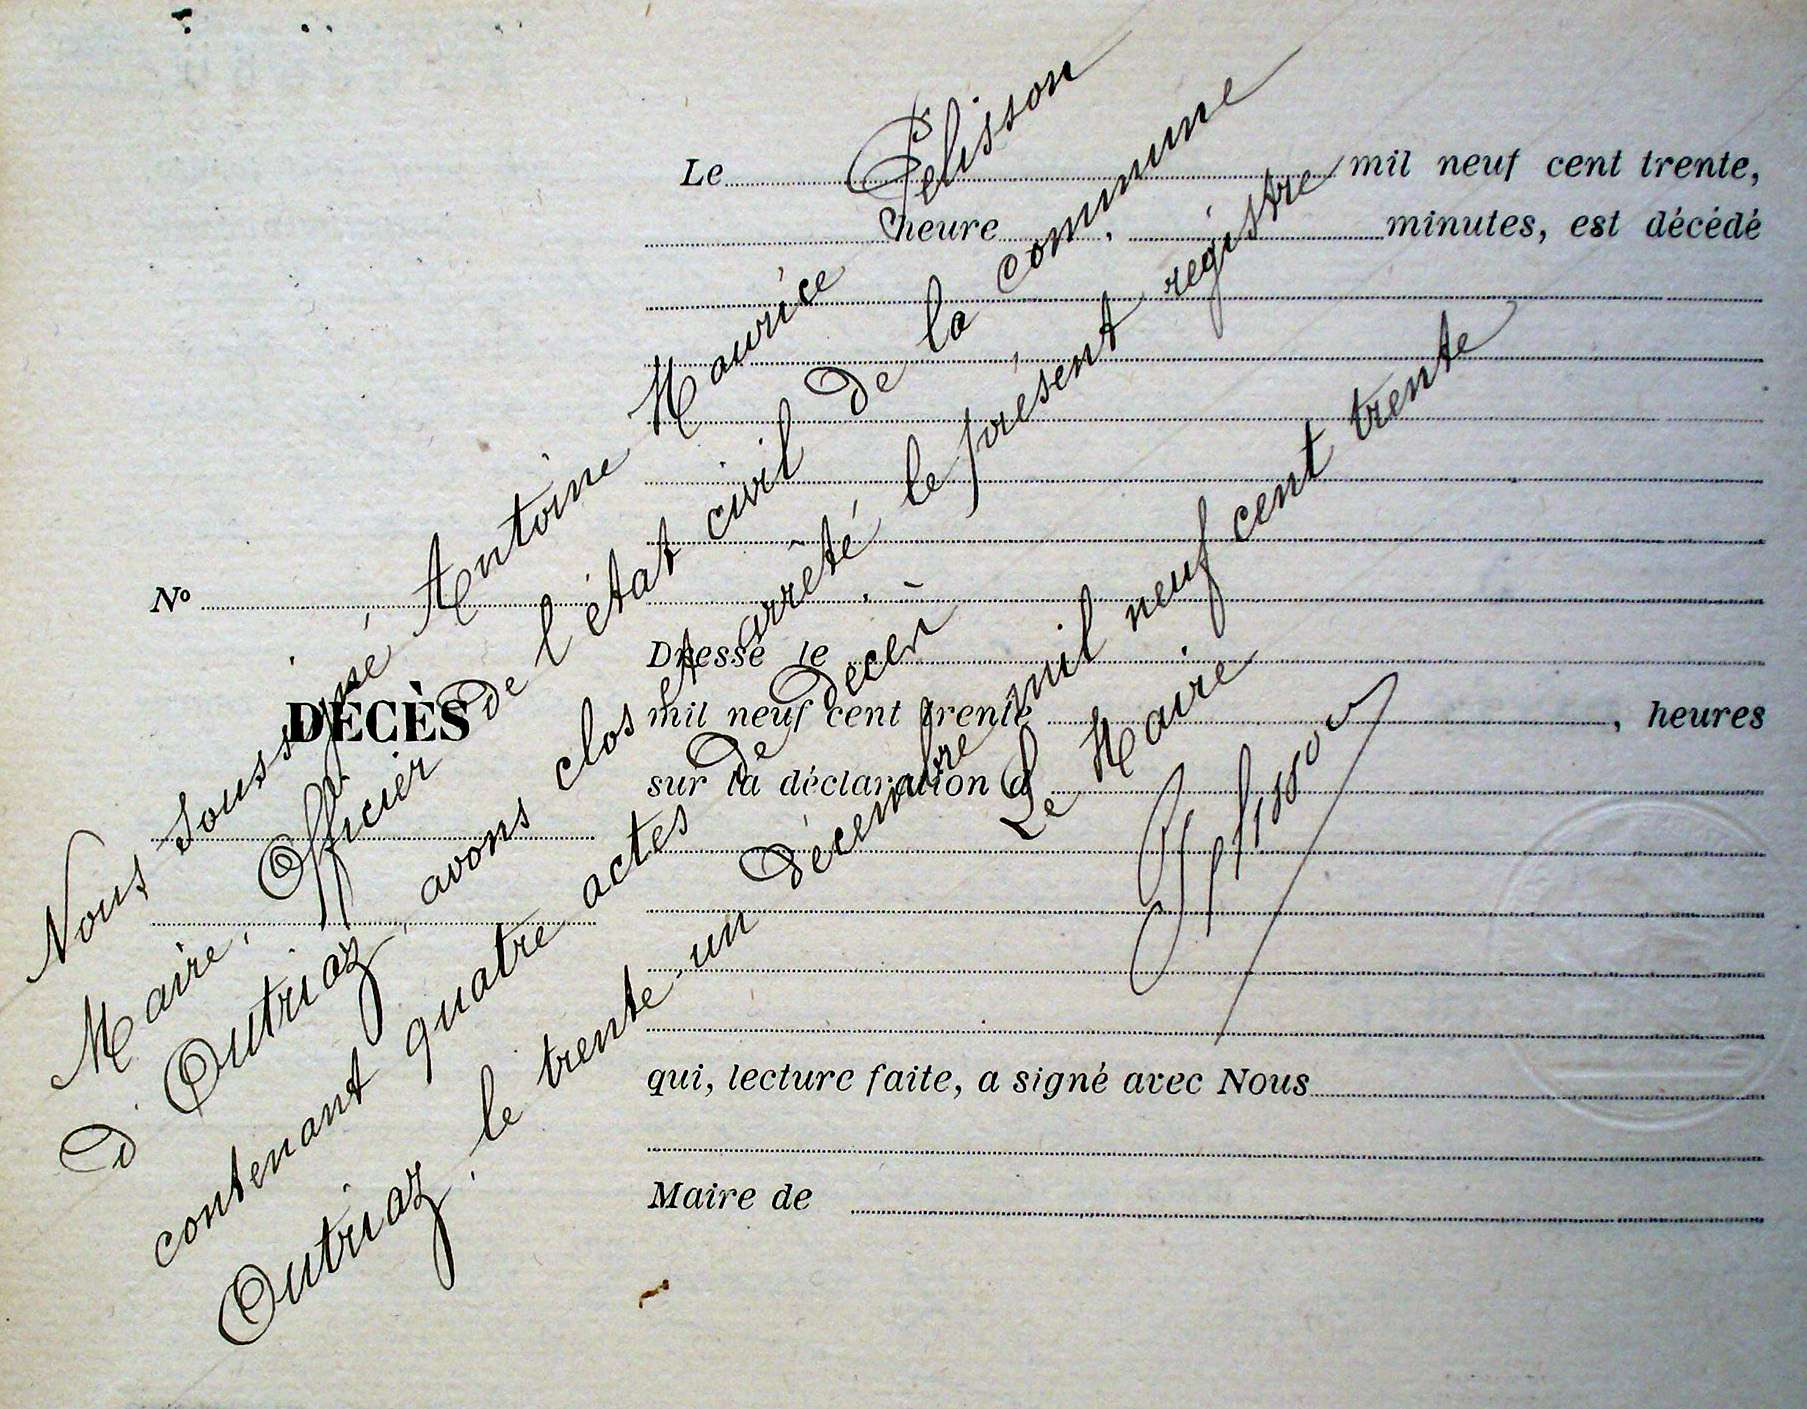 Le mil neuf cent trente,
heure , minutes, est décédé
No
DÉCÈS
Dressé le
mil neuf cent trente , heures
sur la déclaration d
qui, lecture faite, a signé avec Nous
Maire de
Nous soussigné Antoine Maurice Pelisson
Maire, Officier de l'état civil de la commune
d'Outriaz, avons clos et arrêté le présent registre
contenant quatre actes de décès
Outriaz, le trente-un décembre mil neuf cent trente
Le Maire
Pelisson